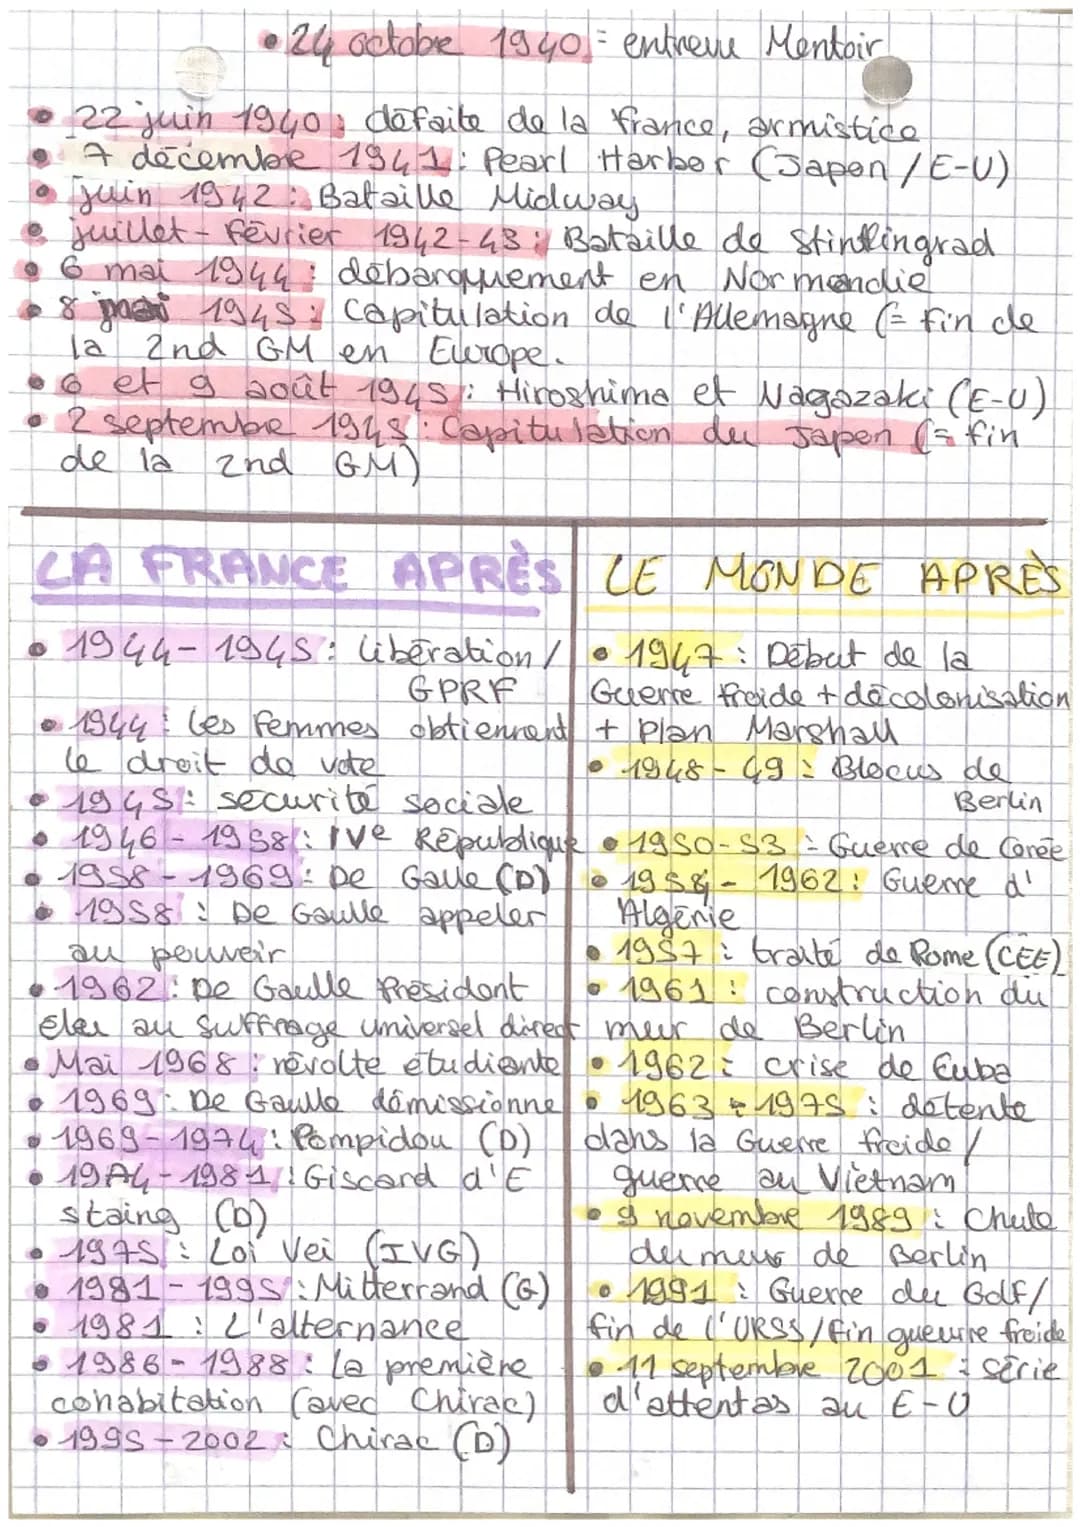 • 24 octobre 1940 = entrevue Mentoir
• 22 juin 1940 : défaite de la france, armistice
• 7 décembre 1941 : Pearl Harbor (Japon / E-U)
• juin 1942 : Bataille Midway
• juillet - février 1942-43 : Bataille de Stinlingrad
• 6 mai 1944 : débarquement en Normandie
• 8 mai 1945 : Capitulation de l'Allemagne (= fin de
la 2nd GM en Europe.
• 6 et 9 août 1945 : Hiroshima et Nagazaki (E-U)
• 2 septembre 1945 : Capitulation du Japon (= fin
de la 2nd GM)
LA FRANCE APRÈS
• 1944-1945 : libération /
GPRF
• 1944 : les femmes obtiennent
le droit de vote
• 1945 : sécurité sociale
• 1946-1958 : IVe République
• 1958-1969 : De Gaule (D)
• 1958 : De Gaulle appeler
au pouvoir
• 1962 : De Gaulle Président
éleu au suffrage universel direct
• Mai 1968 : révolte étudiante
• 1969 : De Gaulle démissionne
• 1969-1974 : Pompidou (D)
• 1974-1981 : Giscard d'E
staing (D)
• 1975 : Loi Veil (IVG)
• 1981-1995 : Mitterrand (G)
• 1981 : L'alternance
• 1986-1988 : la première
cohabitation (avec Chirac)
• 1995-2002 : Chirac (D)
LE MONDE APRÈS
• 1947 : Début de la
Guerre froide + décolonisation
+ Plan Marshall
• 1948-49 : Blocus de
Berlin
• 1950-53 : Guerre de Corée
• 1954-1962 : Guerre d'
Algérie
• 1957 : traité de Rome (CEE)
• 1961 : construction du
mur de Berlin
• 1962 : crise de Cuba
• 1963-1975 : détente
dans la Guerre froide /
guerre au Viêtnam
• 9 novembre 1989 : Chute
du mur de Berlin
• 1991 : Guerre du Golf /
fin de l'URSS / fin gueurre froide
• 11 septembre 2001 : série
d'attentas au E-U